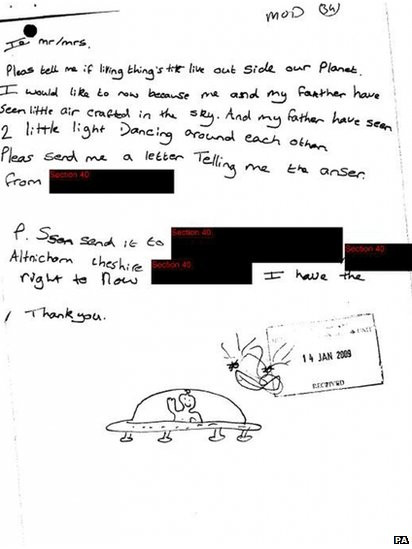 MOD
mr/mrs.
Pleas tell me if living thing's live out side our Planet.
I would like to now because me and my farther have
seen little air crafted in the sky. And my father have seen
2 little light Dancing around each other.
Pleas send me a letter Telling me the anser.
from Section 40
P. Sson send it to Section 40
Section 40
Altricham cheshire Section 40
right to Now I have the
Thankyou.
14 JAN 2009
RECEIVED
PA